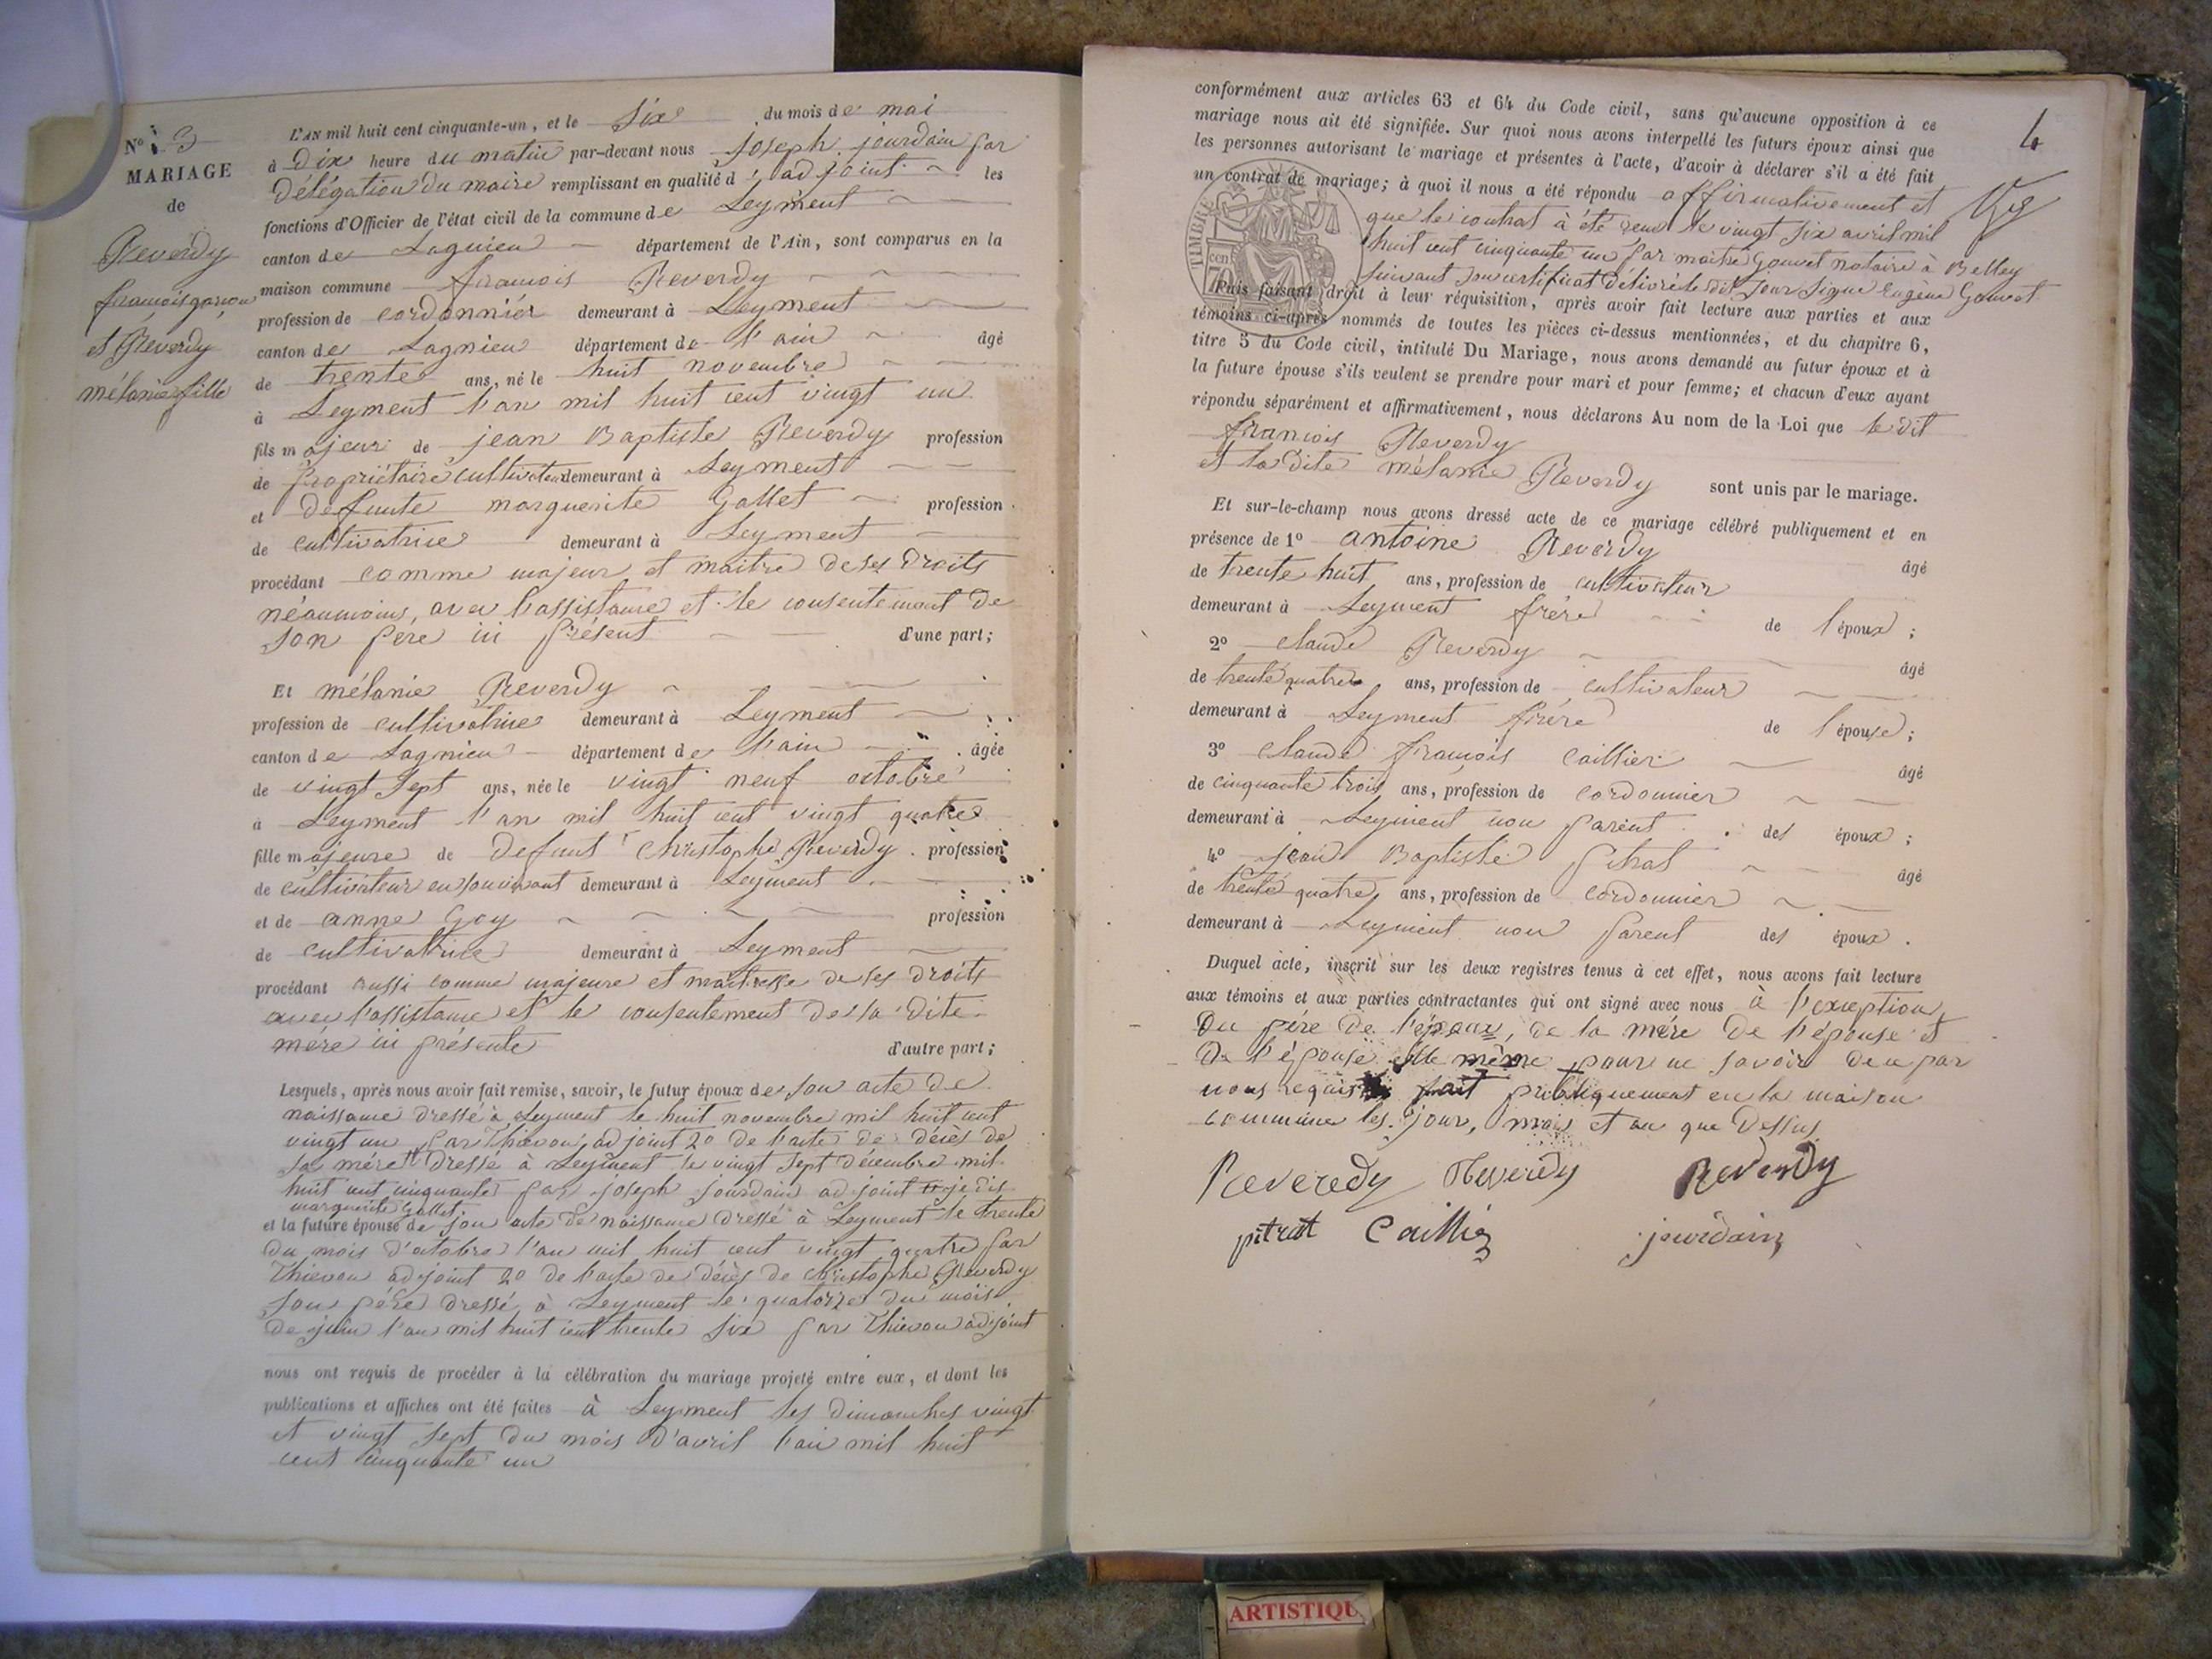 N° 3
MARIAGE
de
Reverdy
francois garcon
et Reverdy
mélanie fille
L'AN mil huit cent cinquante-un, et le six du mois de mai
à dix heure du matin par-devant nous joseph jourdain par
délégation du maire remplissant en qualité d'adjoint les
fonctions d'Officier de l'état civil de la commune de Leyment
canton de Lagnieu département de l'Ain, sont comparus en la
maison commune francois Reverdy
profession de cordonnier demeurant à Leyment
canton de Lagnieu département de l'ain âgé
de trente ans, né le huit novembre
à Leyment l'an mil huit cent vingt un
fils majeur de jean Baptiste Reverdy profession
de Propriétaire cultivateur demeurant à Leyment
et defunte marguerite Gallet profession
de cultivatrice demeurant à Leyment
procédant comme majeur et maitre de ses droits
néaumoins, avec l'assistance et le consentement de
son pere ici présent d'une part;
Et mélanie Reverdy
profession de cultivatrice demeurant à Leyment
canton de Lagnieu département de l'ain âgée
de vingt sept ans, née le vingt neuf octobre
à Leyment l'an mil huit cent vingt quatre
fille majeure de defunt Christophe Reverdy profession
de cultivateur en son vivant demeurant à Leyment
et de anne Goy profession
de cultivatrice demeurant à Leyment
procédant aussi comme majeure et maitresse de ses droits
avec l'assistance et le consentement de sa dite
mére ici présente d'autre part;
Lesquels, après nous avoir fait remise, savoir, le futur époux de son acte de
naissance dressé à Leyment le huit novembre mil huit cent
vingt un par Thievon, adjoint 2° de l'acte de décès de
sa mére dressé à Leyment le vingt sept décembre mil
huit cent cinquante par joseph jourdain adjoint je dis
marguerite Gallet.
et la future épouse de son acte de naissance dressé à Leyment le trente
du mois d'octobre l'an mil huit cent vingt quatre par
Thievon adjoint 2° de l'acte de décès de christophe Reverdy
son pére dressé à Leyment le quatorze du mois
de juin l'an mil huit cent trente six par Thievon adjoint
nous ont requis de procéder à la célébration du mariage projeté entre eux, et dont les
publications et affiches ont été faites à Leyment les dimanches vingt
et vingt sept du mois d'avril l'an mil huit
cent cinquante un
4
conformément aux articles 63 et 64 du Code civil, sans qu'aucune opposition à ce
mariage nous ait été signifiée. Sur quoi nous avons interpellé les futurs époux ainsi que
les personnes autorisant le mariage et présentes à l'acte, d'avoir à déclarer s'il a été fait
un contrat de mariage; à quoi il nous a été répondu affirmativement et
que le contrat à été reçu le vingt six avril mil
huit cent cinquante un par maitre Gouvet notaire à Belley
suivant son certificat délivré le dit jour signé Eugène Gouvet
TIMBRE
70 cen
Puis faisant droit à leur réquisition, après avoir fait lecture aux parties et aux
témoins ci-après nommés de toutes les pièces ci-dessus mentionnées, et du chapitre 6,
titre 5 du Code civil, intitulé Du Mariage, nous avons demandé au futur époux et à
la future épouse s'ils veulent se prendre pour mari et pour femme; et chacun d'eux ayant
répondu séparément et affirmativement, nous déclarons Au nom de la Loi que le dit
francois Reverdy
et la dite mélanie Reverdy sont unis par le mariage.
Et sur-le-champ nous avons dressé acte de ce mariage célébré publiquement et en
présence de 1° antoine Reverdy âgé
de trente huit ans, profession de cultivateur
demeurant à Leyment frére de l'époux;
2° claude Reverdy âgé
de trente quatre ans, profession de cultivateur
demeurant à Leyment frére de l'épouse;
3° claude francois Caillier âgé
de cinquante trois ans, profession de cordonnier
demeurant à Leyment non parent des époux;
4° jean Baptiste pitrat âgé
de trente quatre ans, profession de cordonnier
demeurant à Leyment non parent des époux.
Duquel acte, inscrit sur les deux registres tenus à cet effet, nous avons fait lecture
aux témoins et aux parties contractantes qui ont signé avec nous à l'exception
du pére de l'époux, de la mére de l'épouse et
de l'épouse elle même pour ne savoir de ce par
nous requis fait publiquement en la maison
commune les jour, mois et an que dessus
Reveredy Reverdy Reverdy
pitrat Caillier jourdain
ARTISTIQU